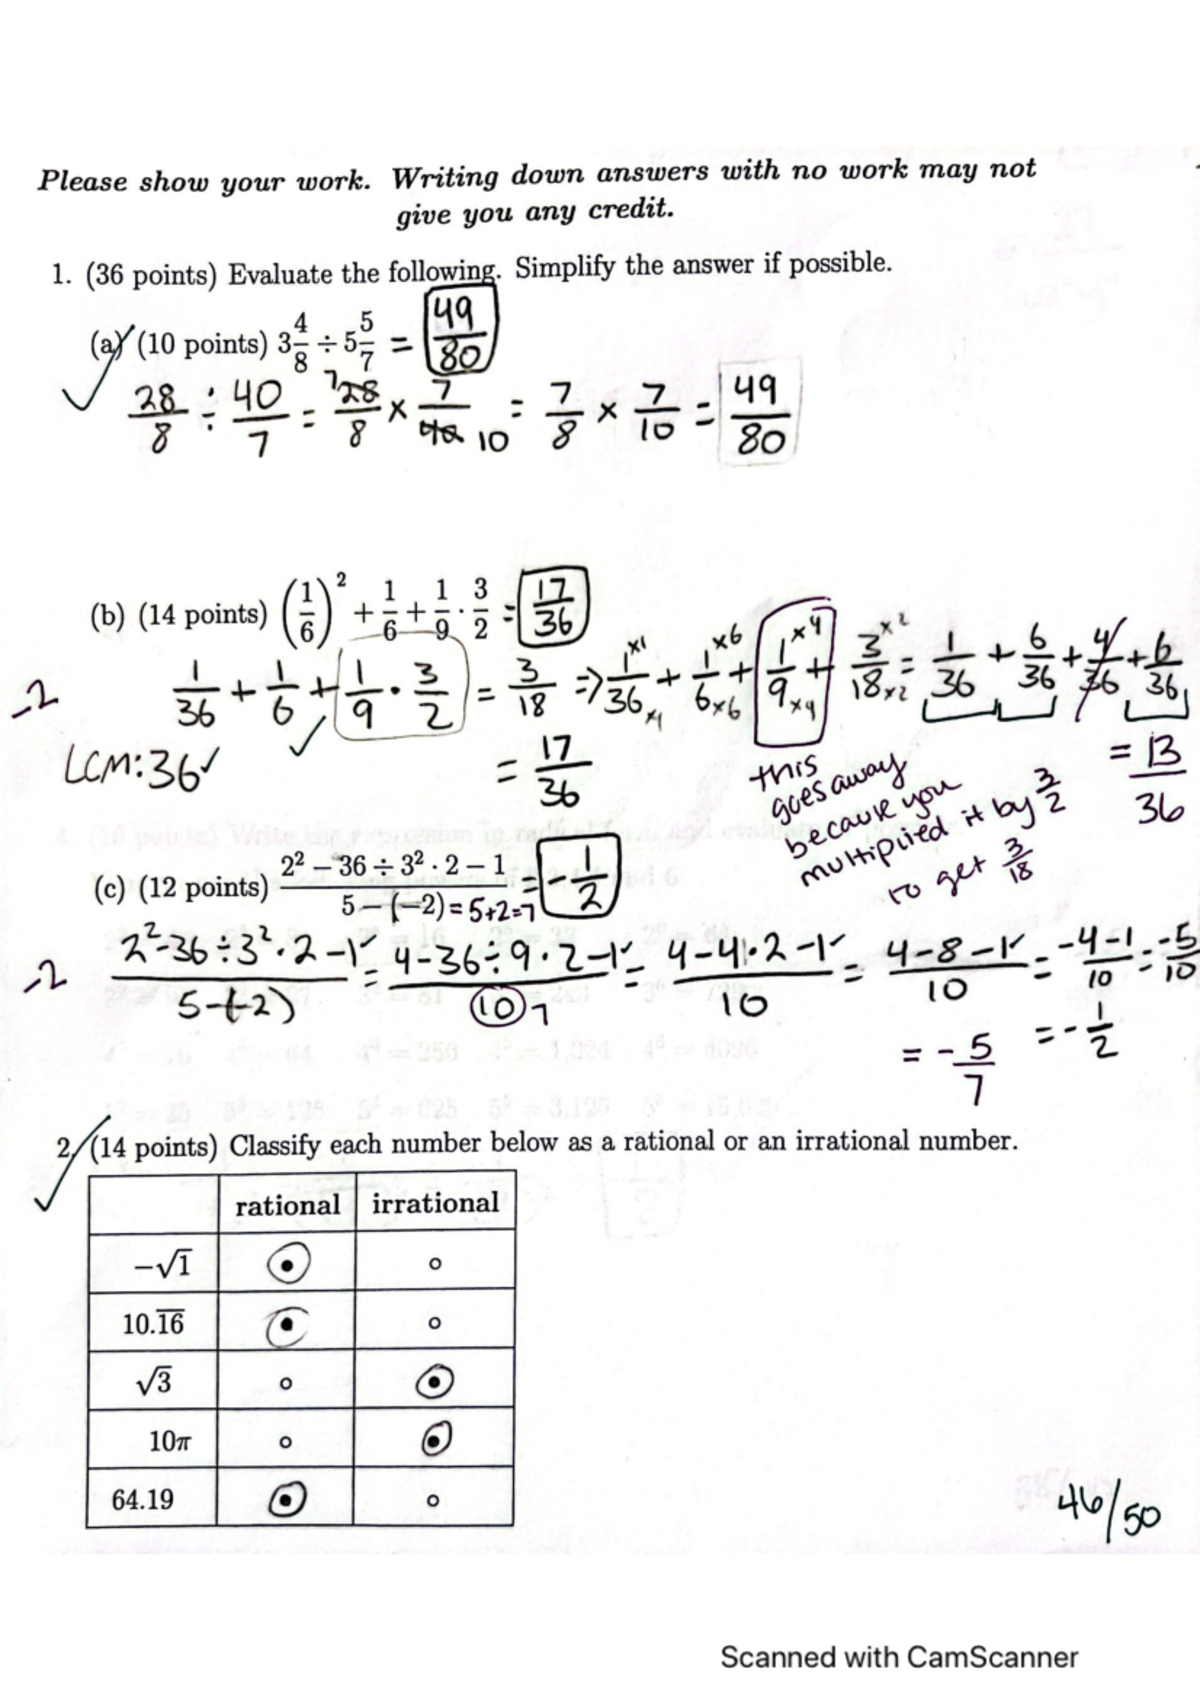 Please show your work. Writing down answers with no work may not
give you any credit.
1. (36 points) Evaluate the following. Simplify the answer if possible.
(a) (10 points) 3 4/8 ÷ 5 5/7 = 49/80
28/8 ÷ 40/7 = 7 28/8 × 7/40 10 = 7/8 × 7/10 = 49/80
(b) (14 points) (1/6)² + 1/6 + 1/9 · 3/2 = 17/36
-2 1/36 + 1/6 + 1/9 · 3/2 = 3/18 => 1/36 ×1/×1 + 1/6 ×6/×6 + 1/9 ×4/×4 + 3/18 ×2/×2 = 1/36 + 6/36 + 4/36 + 6/36
LCM: 36 ✓ = 17/36 = 13/36
this
goes away
because you
multiplied it by 3/2
to get 3/18
(c) (12 points) 2² − 36 ÷ 3² · 2 − 1 / 5 − (−2) = 5+2=7 = -1/2
-2 2² 36 ÷ 3² · 2 - 1 / 5-(-2) = 4-36÷9·2-1 / 10 7 = 4-4·2-1 / 10 = 4-8-1 / 10 = -4-1 / 10 = -5/10
= -5/7 = -1/2
2. (14 points) Classify each number below as a rational or an irrational number.
rational irrational
−√1
10.1̅6̅
√3
10π
64.19
46/50
Scanned with CamScanner